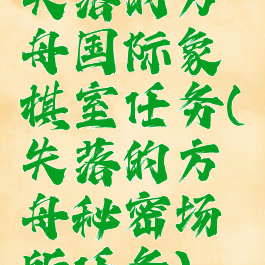 失落的方
舟国际象
棋室任务(
失落的方
舟秘密场
所任务)